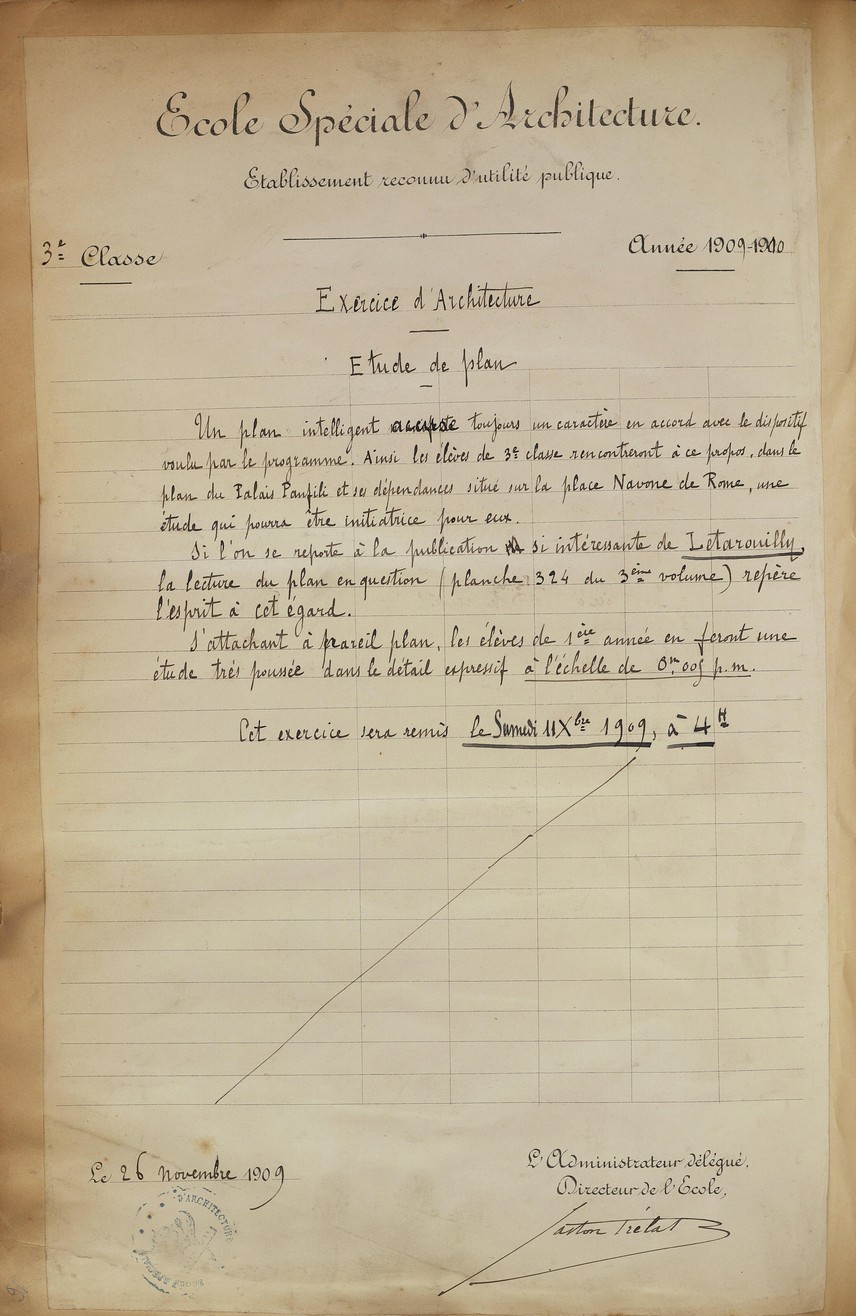 Ecole Spéciale d'Architecture.
Etablissement reconnu d'utilité publique.
3e Classe
Année 1909-1910
Exercice d'Architecture
Etude de plan
Un plan intelligent toujours un caractère en accord avec le dispositif
voulu par le programme. Ainsi les élèves de 3e classe rencontreront à ce propos, dans le
plan du Palais Panfili et ses dépendances situé sur la place Navone de Rome, une
étude qui pourra être initiatrice pour eux.
Si l'on se reporte à la publication si intéressante de Letarouilly,
la lecture du plan en question (planche 324 du 3ème volume) repère
l'esprit à cet égard.
S'attachant à pareil plan, les élèves de 1ère année en feront une
étude trés poussée dans le détail expressif à l'échelle de 0m005 p.m.
Cet exercice sera remis le Samedi 11 Xbre 1909, à 4H
Le 26 Novembre 1909
L'Administrateur délégué.
Directeur de l'Ecole,
Gaston Trélat
D'ARCHITECTURE